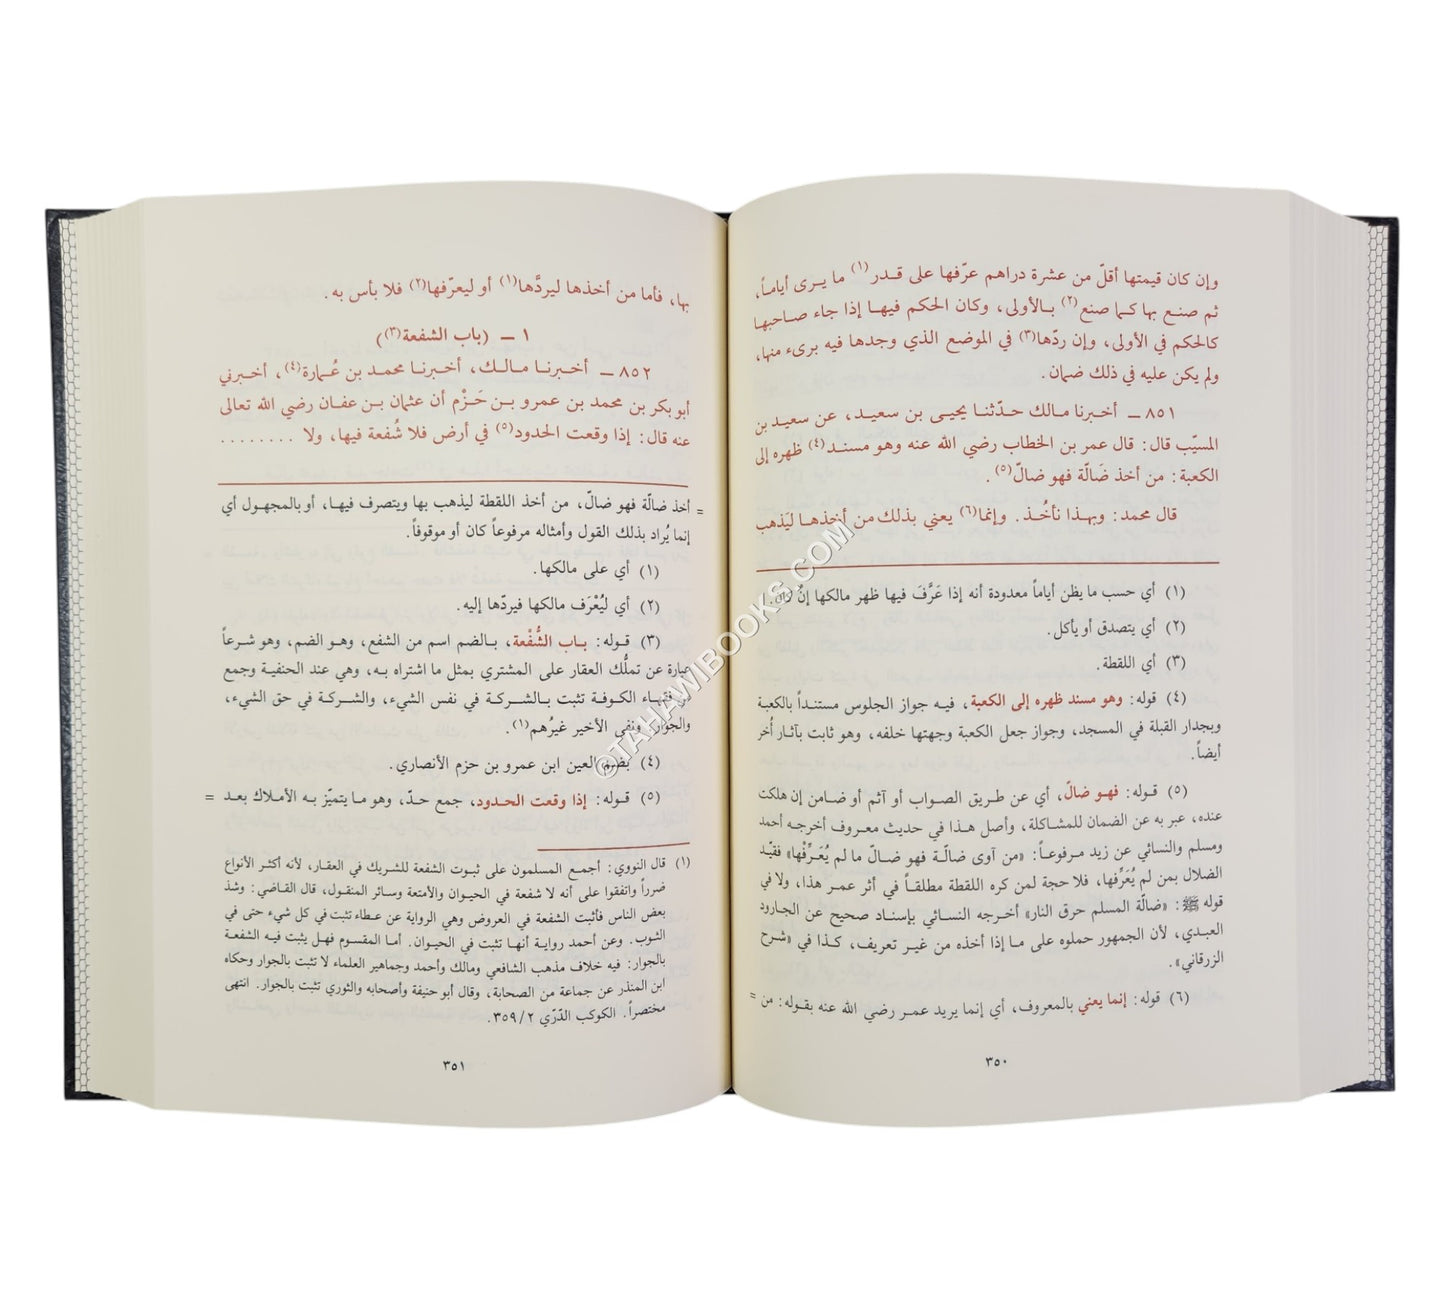 وإن كان قيمتها أقلّ من عشرة دراهم عرّفها على قدر(١) ما يرى أياماً،
ثم صنع بها كما صنع(٢) بالأولى، وكان الحكم فيها إذا جاء صاحبها
كالحكم في الأولى، وإن ردّها(٣) في الموضع الذي وجدها فيه برىء منها،
ولم يكن عليه في ذلك ضمان.
٨٥١ ــ أخبرنا مالك حدّثنا يحيى بن سعيد، عن سعيد بن
المسيّب قال: قال عمر بن الخطاب رضي الله عنه وهو مسند(٤) ظهره إلى
الكعبة: من أخذ ضَالّة فهو ضالّ(٥).
قال محمد: وبهذا نأخُذ. وإنما(٦) يعني بذلك من أخذها ليَذهب
(١) أي حسب ما يظن أياماً معدودة أنه إذا عَرَّفَ فيها ظهر مالكها إنْ كان.
(٢) أي يتصدق أو يأكل.
(٣) أي اللقطة.
(٤) قوله: وهو مسند ظهره إلى الكعبة، فيه جواز الجلوس مستنداً بالكعبة
وبجدار القبلة في المسجد، وجواز جعل الكعبة وجهتها خلفه، وهو ثابت بآثار أُخر
أيضاً.
(٥) قوله: فهو ضالّ، أي عن طريق الصواب أو آثم أو ضامن إن هلكت
عنده، عبر به عن الضمان للمشاكلة، وأصل هذا في حديث معروف أخرجه أحمد
ومسلم والنسائي عن زيد مرفوعاً: «من آوى ضالّة فهو ضالّ ما لم يُعَرِّفْها» فقيّد
الضلال بمن لم يُعَرِّفها، فلا حجة لمن كره اللقطة مطلقاً في أثر عمر هذا، ولا في
قوله ﷺ: «ضالّة المسلم حرق النار» أخرجه النسائي بإسناد صحيح عن الجارود
العبدي، لأن الجمهور حملوه على ما إذا أخذه من غير تعريف، كذا في «شرح
الزرقاني».
(٦) قوله: إنما يعني بالمعروف، أي إنما يريد عمر رضي الله عنه بقوله: من =
٣٥٠
بها، فأما من أخذها ليردَّها(١) أو ليعرّفها(٢) فلا بأس به.
١ ــ (باب الشفعة(٣))
٨٥٢ ــ أخبرنا مالك، أخبرنا محمد بن عُمارة(٤)، أخبرني
أبو بكر بن محمد بن عمرو بن حَزْم أن عثمان بن عفان رضي الله تعالى
عنه قال: إذا وقعت الحدود(٥) في أرض فلا شُفعة فيها، ولا ........
= أخذ ضالّة فهو ضالّ، من أخذ اللقطة ليذهب بها ويتصرف فيها، أو بالمجهول أي
إنما يُراد بذلك القول وأمثاله مرفوعاً كان أو موقوفاً.
(١) أي على مالكها.
(٢) أي ليُعْرَف مالكها فيردّها إليه.
(٣) قوله: باب الشُّفْعة، بالضم اسم من الشفع، وهو الضم، وهو شرعاً
عبارة عن تملُّك العقار على المشتري بمثل ما اشتراه به، وهي عند الحنفية وجمع
من فقهاء الكوفة تثبت بالشركة في نفس الشيء، والشركة في حق الشيء،
والجوار، ونفى الأخير غيرُهم(١).
(٤) بضم العين ابن عمرو بن حزم الأنصاري.
(٥) قوله: إذا وقعت الحدود، جمع حدّ، وهو ما يتميّز به الأملاك بعد =
(١) قال النووي: أجمع المسلمون على ثبوت الشفعة للشريك في العقار، لأنه أكثر الأنواع
ضرراً واتفقوا على أنه لا شفعة في الحيوان والأمتعة وسائر المنقول، قال القاضي: وشذ
بعض الناس فأثبت الشفعة في العروض وهي الرواية عن عطاء تثبت في كل شيء حتى في
الثوب. وعن أحمد رواية أنها تثبت في الحيوان. أما المقسوم فهل يثبت فيه الشفعة
بالجوار: فيه خلاف مذهب الشافعي ومالك وأحمد وجماهير العلماء لا تثبت بالجوار وحكاه
ابن المنذر عن جماعة من الصحابة، وقال أبو حنيفة وأصحابه والثوري تثبت بالجوار. انتهى
مختصراً. الكوكب الدّرّي ٣٥٩/٢.
٣٥١
©TAHAWIBOOKS.COM